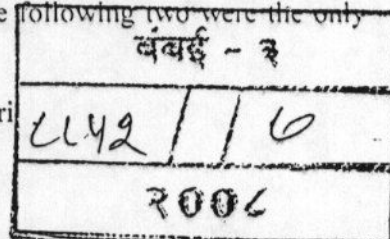 e following two were the only
बंबई - ३
ri
८८५२ / / ७
२००८